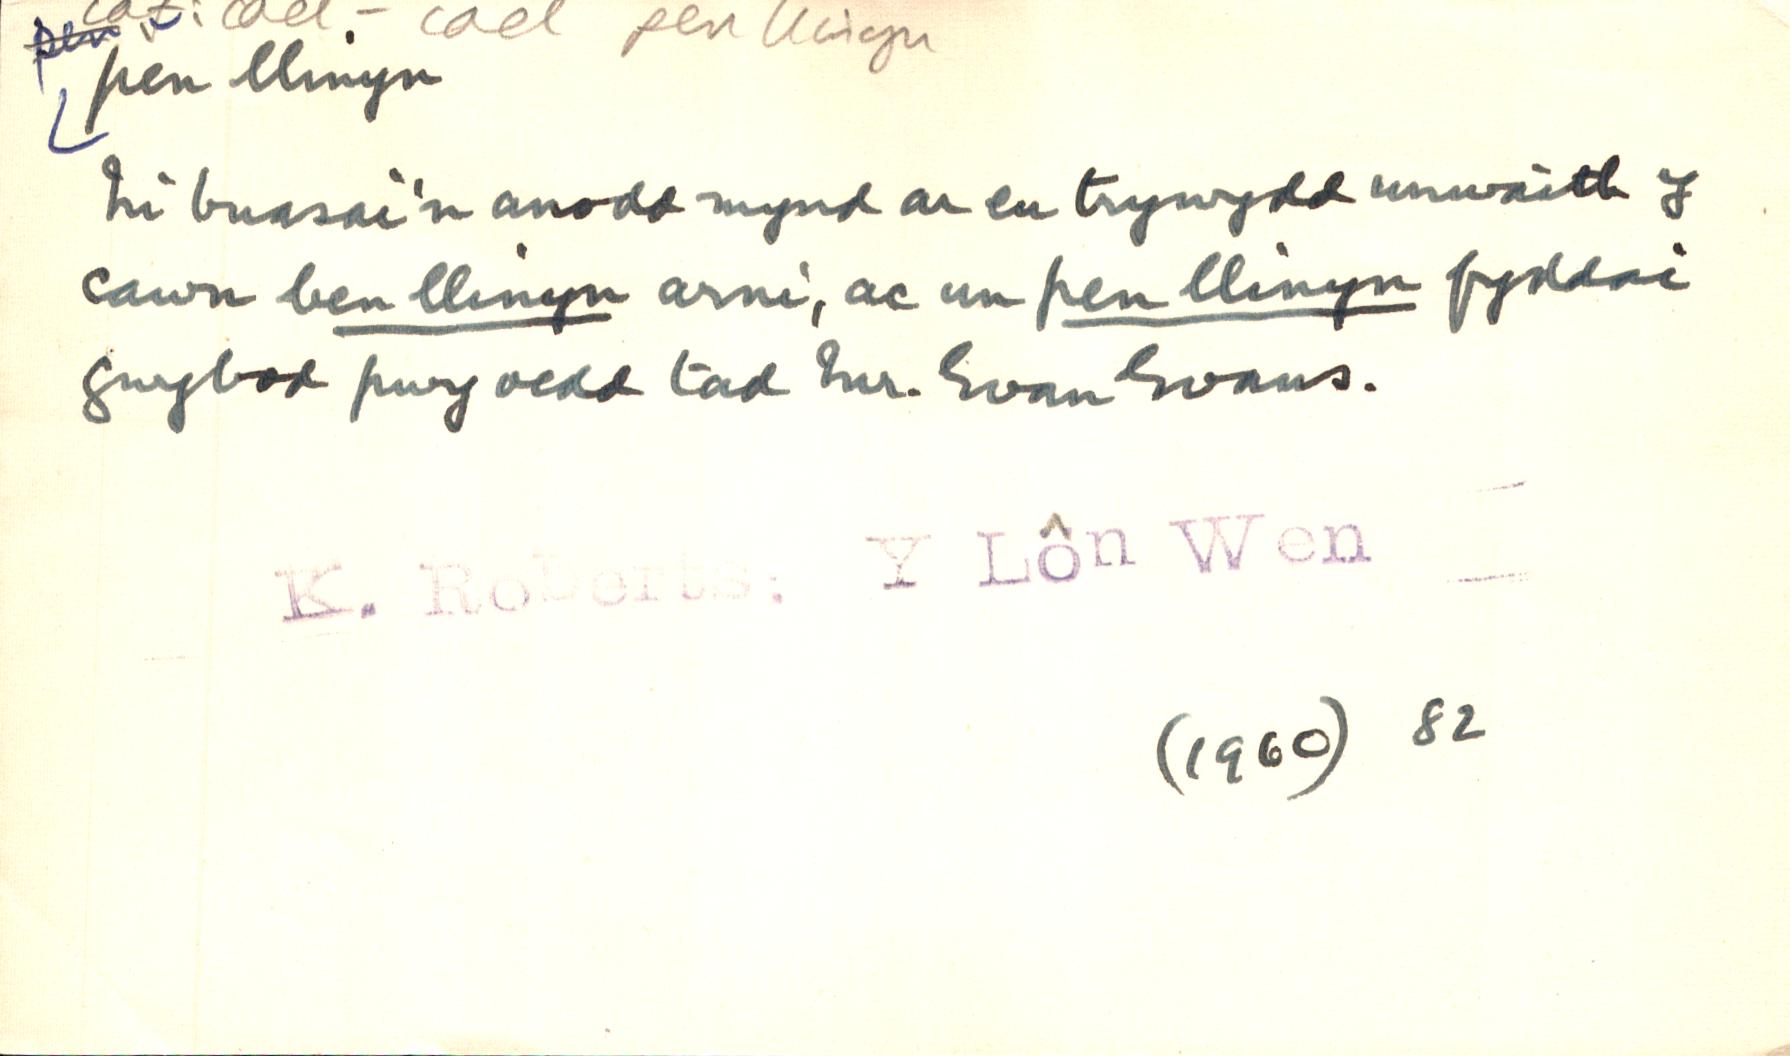 cael - cael pen llinyn
pen
pen llinyn
Ni buasai'n anodd mynd ar eu trywydd unwaith y
cawn ben llinyn arni, ac un pen llinyn fyddai
gwybod pwy oedd tad Mr. Evan Evans.
K. Roberts: Y Lôn Wen
(1960) 82